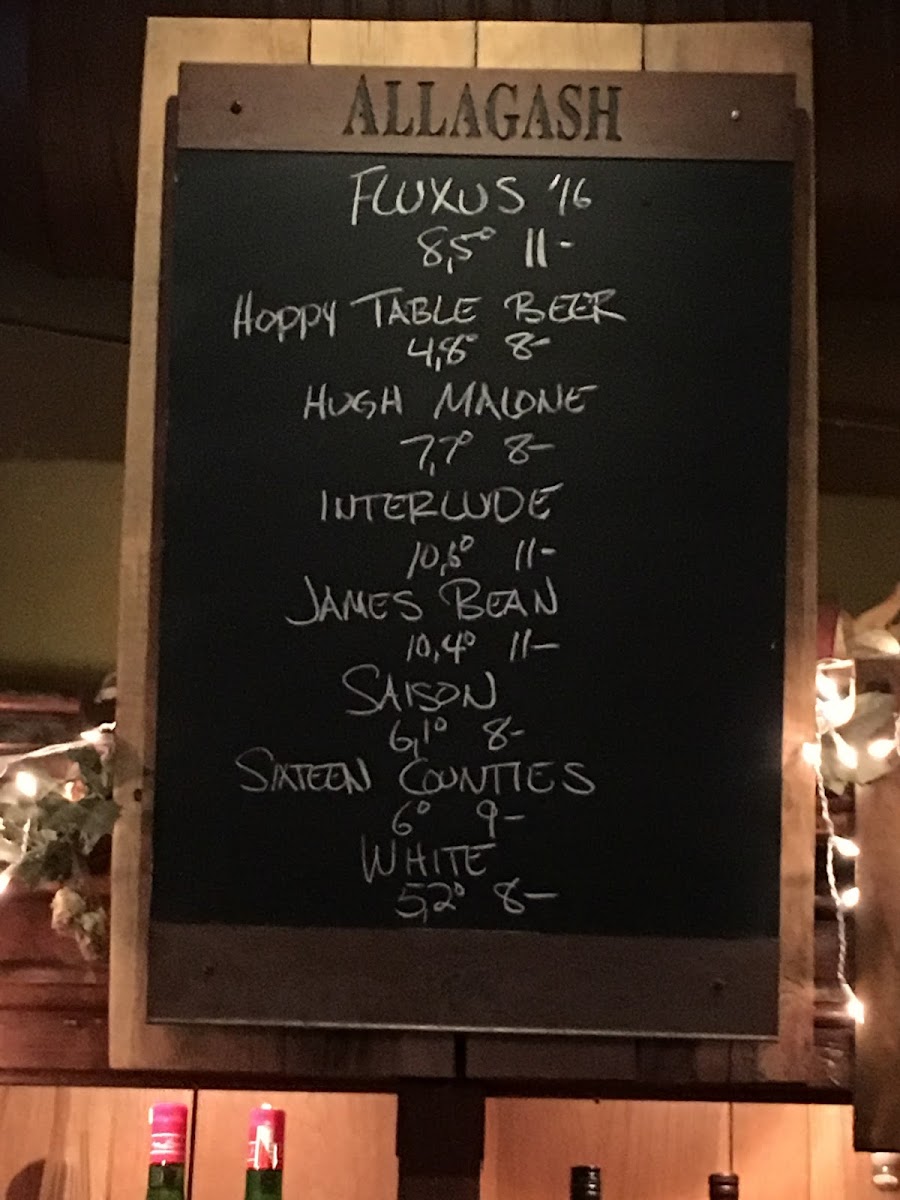 ALLAGASH
FLUXUS '16
8,5° 11-
HOPPY TABLE BEER
4,8° 8-
HUGH MALONE
7,7° 8-
INTERLUDE
11-
JAMES BEAN
10,4° 11-
SAISON
6,1° 8-
SIXTEEN COUNTIES
6° 9-
WHITE
5,2° 8-